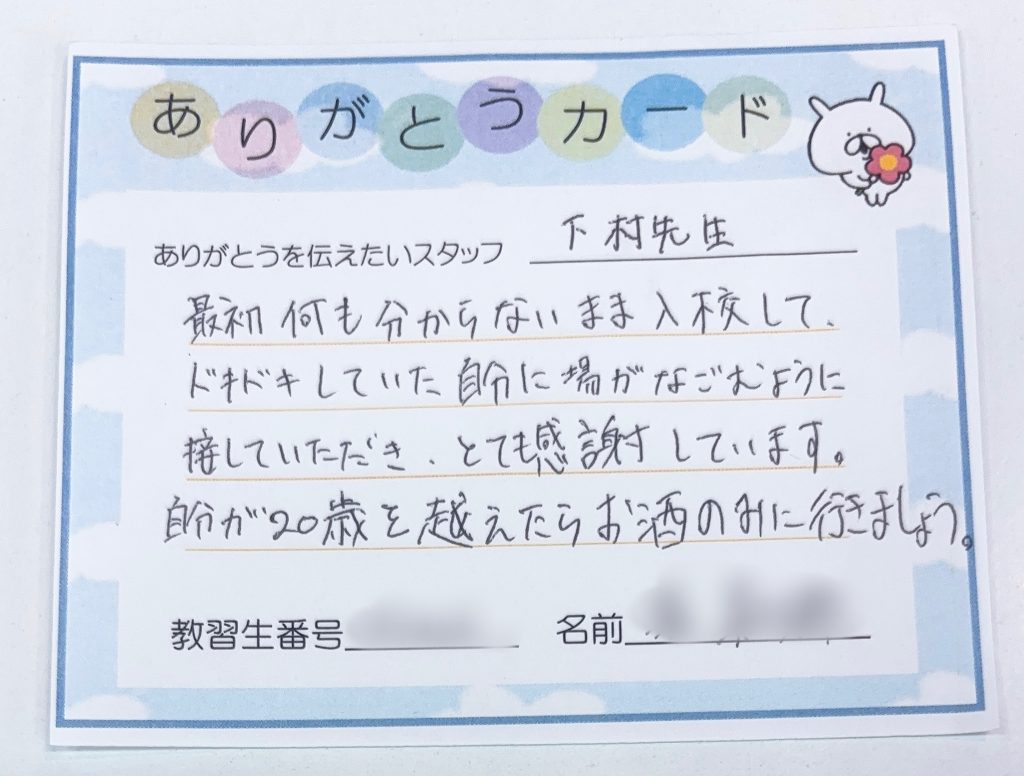 ありがとうカード
ありがとうを伝えたいスタッフ 下村先生
最初何も分からないまま入校して、
ドキドキしていた自分に場がなごむように
接していただき、とても感謝しています。
自分が20歳を越えたらお酒のみに行きましょう。
教習生番号 名前